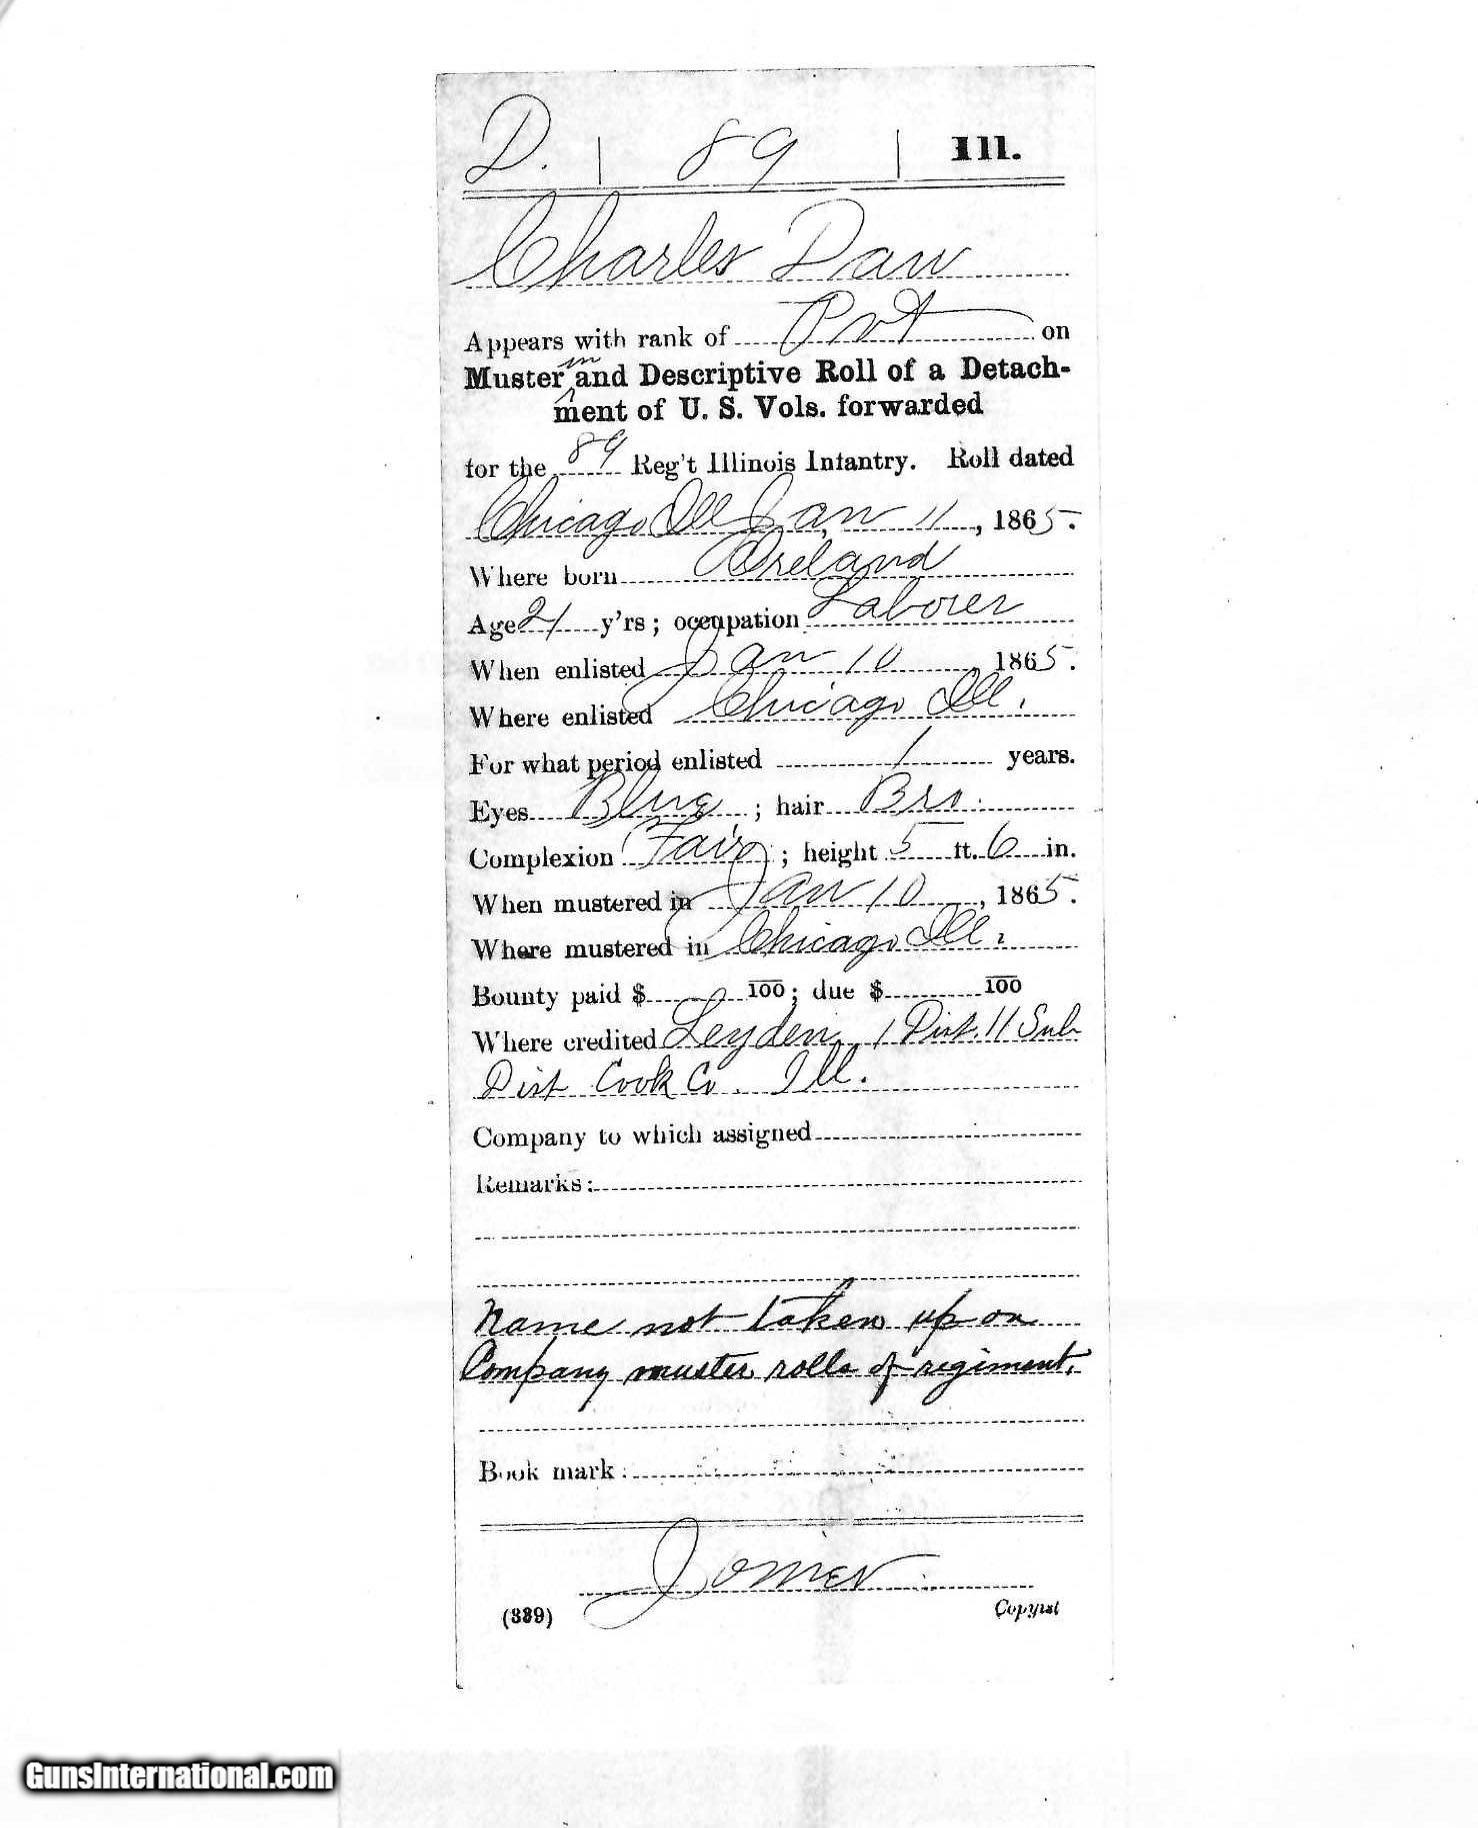 D. | 89 | Ill.
Charles Daw
Appears with rank of Pvt on
Muster in and Descriptive Roll of a Detach-
ment of U. S. Vols. forwarded
for the 89 Reg't Illinois Infantry. Roll dated
Chicago Ill Jan 11, 1865.
Where born Ireland
Age 21 y'rs; occupation Laborer
When enlisted Jan 10, 1865.
Where enlisted Chicago Ill.
For what period enlisted 1 years.
Eyes Blue; hair Bro.
Complexion Fair; height 5 ft. 6 in.
When mustered in Jan 10, 1865.
Where mustered in Chicago Ill.
Bounty paid $ 100; due $ 100
Where credited Leyden, 1 Dist. 11 Sub
Dist Cook Co. Ill.
Company to which assigned
Remarks:
Name not taken up on
Company muster rolls of regiment.
Book mark:
(339) Copyist
GunsInternational.com